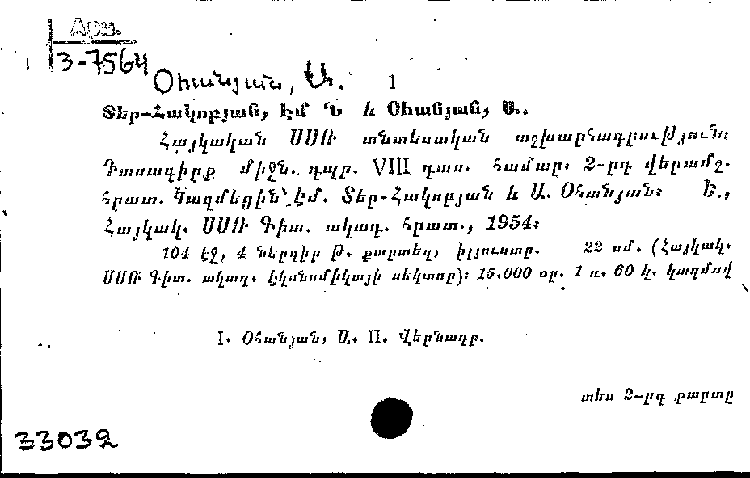 Арм.
3-7564
Օհանյան, Ա. 1
Տեր-Հակոբյան, Էմ և Օհանյան, Ա.
Հայկական ՍՍՌ տնտեսական աշխարհագրություն:
Դասագիրք միջն. դպր. VIII դաս. համար: 2-րդ վերամշ.
հրատ. Կազմեցին՝ Էմ. Տեր-Հակոբյան և Ա. Օհանյան: Ե.,
Հայկակ. ՍՍՌ Գիտ. ակադ. հրատ., 1954:
104 էջ, 4 ներդիր թ. քարտեզ, իլյուստր. 22 սմ. (Հայկակ.
ՍՍՌ Գիտ. ակադ. էկոնոմիկայի սեկտոր): 15.000 օր. 1 ռ. 60 կ. կազմով
I. Օհանյան, Ա. II. Վերնագր.
տես 2-րդ քարտը
33032